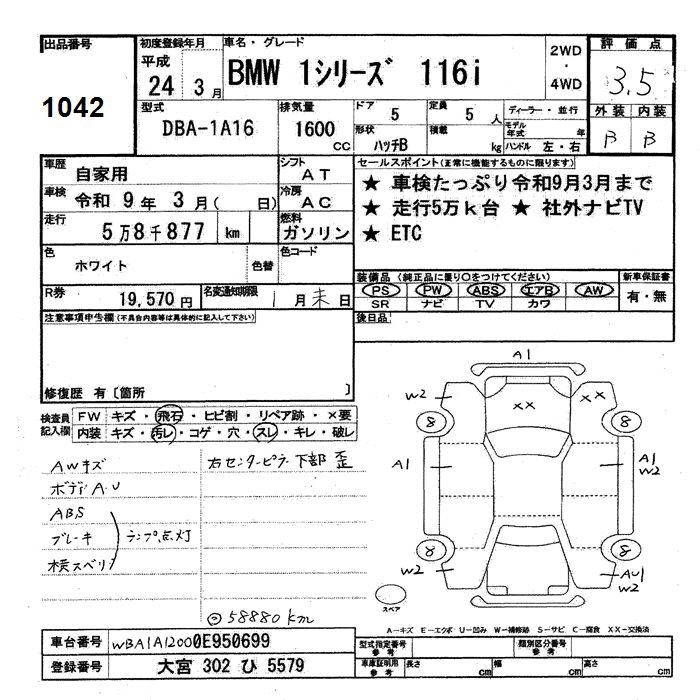 出品番号
1042
初度登録年月
平成
24 3月
車名・グレード
BMW 1シリーズ 116i
2WD
・
4WD
評価点
3.5
外装 内装
B B
型式
DBA-1A16
排気量
1600
CC
ドア 5
定員 5 人
形状 ハッチB
積載 kg
ディーラー・並行
モデル年式 年
ハンドル 左・右
車歴 自家用
シフト AT
車検 令和 9年 3月( 日)
冷房 AC
走行 5万8千877 km
燃料 ガソリン
色 ホワイト 色替
色コード
R券 19,570円
名変通知期限 1月末日
セールスポイント(正常に機能するものに限ります)
★ 車検たっぷり令和9月3月まで
★ 走行5万k台 ★ 社外ナビTV
★ ETC
装備品(純正品に限り○をつけてください)
新車保証書
PS PW ABS エアB AW
SR ナビ TV カワ
有・無
後日品
注意事項申告欄(不具合内容等は具体的に記入して下さい)
修復歴 有〔箇所 〕
検査員記入欄
FW キズ・飛石・ヒビ割・リペア跡・×要
内装 キズ・汚レ・コゲ・穴・スレ・キレ・破レ
AWキズ
ボディA.U
ABS
ブレーキ
横スベリ
ランプ点灯
右センターピラー下部 歪
58880km
A1
W2
XX
XX
8
8
A1
A1
W2
8
8
W2
AU1
W2
スペア
A-キズ E-エクボ U-凹み W-補修跡 S-サビ C-腐食 XX-交換済
車台番号 WBA1A12000E950699
登録番号 大宮 302 ひ 5579
型式指定番号 参考
類別区分番号 参考
車庫証明用 参考
長さ cm
幅 cm
高さ cm